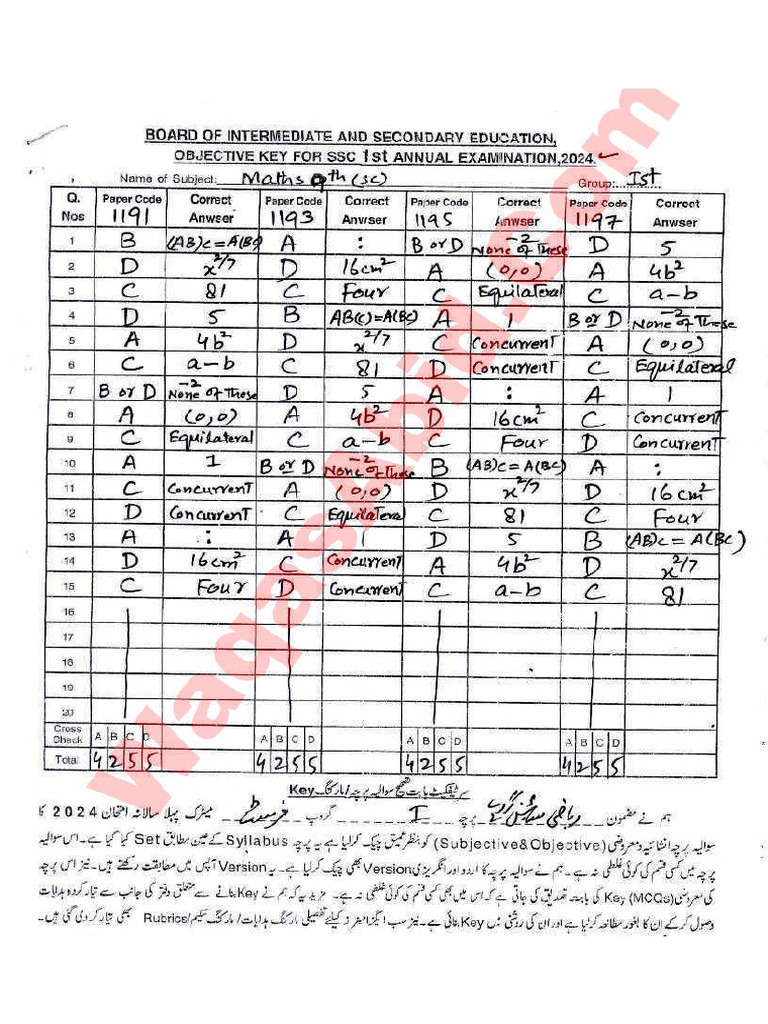 BOARD OF INTERMEDIATE AND SECONDARY EDUCATION,
OBJECTIVE KEY FOR SSC 1st ANNUAL EXAMINATION,2024.
Name of Subject: Maths 9th (SC) Group: Ist
Q. Nos Paper Code 1191 Correct Anwser Paper Code 1193 Correct Anvwser Paper Code 1195 Correct Anwser Paper Code 1197 Correct Anwser
1 B (AB)C=A(BC) A : B or D -2 None of these D 5
2 D x^2/7 D 16cm² A (0,0) A 4b²
3 C 81 C Four C Equilateral C a-b
4 D 5 B AB(C)=A(BC) A 1 B or D -2 None of these
5 A 4b² D x^2/7 C Concurrent A (0,0)
6 C a-b C 81 D Concurrent C Equilateral
7 B or D -2 None of these D 5 A : A 1
8 A (0,0) A 4b² D 16cm² C Concurrent
9 C Equilateral C a-b C Four D Concurrent
10 A 1 B or D -2 None of these B (AB)C=A(BC) A :
11 C Concurrent A (0,0) D x^2/7 D 16cm²
12 D Concurrent C Equilateral C 81 C Four
13 A : A 1 D 5 B (AB)C=A(BC)
14 D 16cm² C Concurrent A 4b² D x^2/7
15 C Four D Concurrent C a-b C 81
16
17
18
19
20
Cross Check A B C D A B C D A B C D A B C D
Total 4 2 5 5 4 2 5 5 4 2 5 5 4 2 5 5
سرٹیفکیٹ بابت تصحیح سوالیہ پرچہ/مارکنگ Key
ہم نے مضمون ریاضی سائنس گروپ پرچہ I گروپ فرسٹ میٹرک پہلا سالانہ امتحان 2024 کا
سوالیہ پرچہ انشائیہ ومعروضی (Subjective&Objective) کو بنظر عمیق چیک کرلیا ہے یہ پرچہ Syllabus کے عین مطابق Set کیا گیا ہے۔ اس سوالیہ
پرچہ میں کسی قسم کی کوئی غلطی نہ ہے۔ ہم نے سوالیہ پرچہ کا اردو اور انگریزی Version بھی چیک کرلیا ہے۔ یہ Version آپس میں مطابقت رکھتے ہیں۔ نیز اس پرچہ
کی معروضی (MCQs) Key کی بابت تصدیق کی جاتی ہے کہ اس میں بھی کسی قسم کی کوئی غلطی نہ ہے۔ مزید یہ کہ ہم نے Key بنانے سے متعلق دفتر کی جانب سے تیار کردہ ہدایات
وصول کرکے ان کا بغور مطالعہ کرلیا ہے اور ان کی روشنی میں Key بنائی ہے۔ نیز سب ایگزامینرز کیلئے تفصیلی مارکنگ ہدایات/مارکنگ سکیم/Rubrics بھی تیار کر دی گئی ہیں۔
WaqasAbid.Com